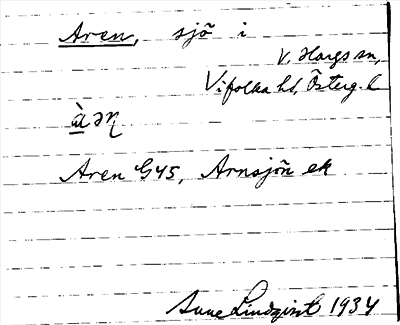 Aren, sjö i
V. Hargs sn,
Vifolka hd, Österg. l
à̱ əɳ
Aren G45, Arnsjön ek
Sune Lindqvist 1934